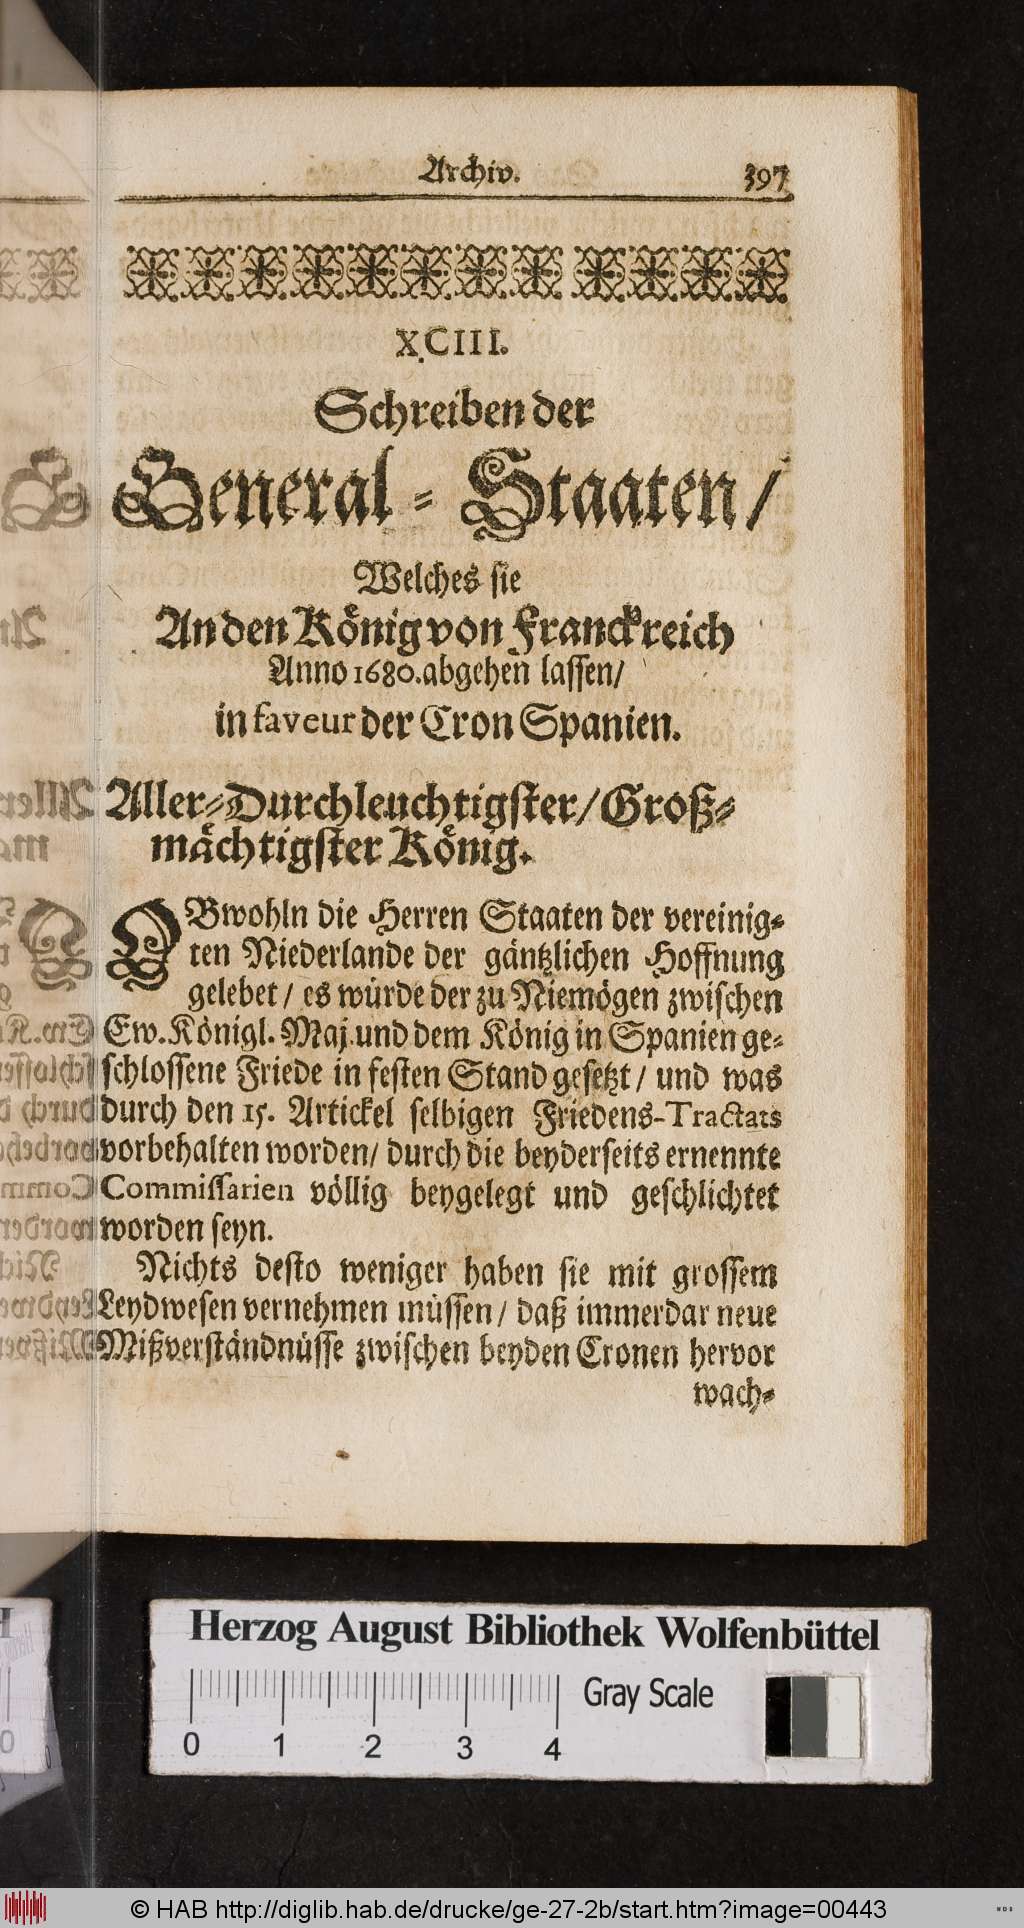 Archiv. 397
XCIII.
Schreiben der
General-Staaten/
Welches sie
An den König von Franckreich
Anno 1680. abgehen lassen/
in faveur der Cron Spanien.
Aller-Durchleuchtigster/Groß-
mächtigster König.
OBwohln die Herren Staaten der vereinig-
ten Niederlande der gäntzlichen Hoffnung
gelebet/ es würde der zu Niemögen zwischen
Ew. Königl. Maj. und dem König in Spanien ge-
schlossene Friede in festen Stand gesetzt/ und was
durch den 15. Artickel selbigen Friedens-Tractats
vorbehalten worden/ durch die beyderseits ernennte
Commissarien völlig beygelegt und geschlichtet
worden seyn.
Nichts desto weniger haben sie mit grossem
Leydwesen vernehmen müssen/ daß immerdar neue
Mißverständnüsse zwischen beyden Cronen hervor
wach-
Herzog August Bibliothek Wolfenbüttel
Gray Scale
0 1 2 3 4
© HAB http://diglib.hab.de/drucke/ge-27-2b/start.htm?image=00443